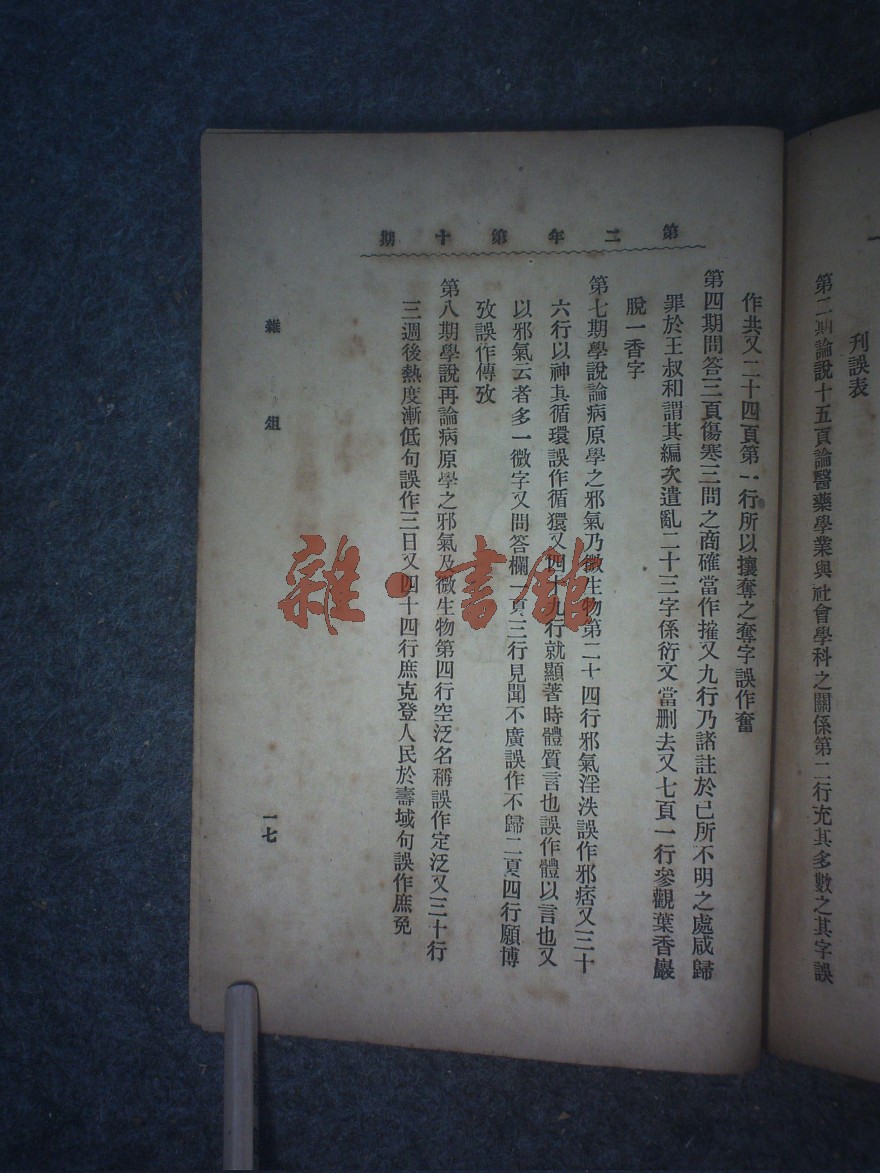 刊誤表
第二期論說十五頁論醫藥學業與社會學科之關係第二行充其多數之其字誤
第二年第十期
作共又二十四頁第一行所以攘奪之奪字誤作奮
第四期問答三頁傷寒三問之商確當作搉又九行乃諸註於已所不明之處咸歸
罪於王叔和謂其編次遺亂二十三字係衍文當刪去又七頁一行參觀葉香巖
脫一香字
第七期學說論病原學之邪氣乃微生物第二十四行邪氣淫泆誤作邪痞又三十
六行以神其循環誤作循獧又四十九行就顯著時體質言也誤作體以言也又
以邪氣云者多一微字又問答欄一頁三行見聞不廣誤作不歸二頁四行願博
攷誤作傳攷
第八期學說再論病原學之邪氣及微生物第四行空泛名稱誤作定泛又三十行
三週後熱度漸低句誤作三日又四十四行庶克登人民於壽域句誤作庶免
雜俎
一七
雜·書館